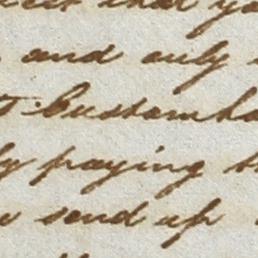 that yo
and only
t. Customho
ly paying th
send up